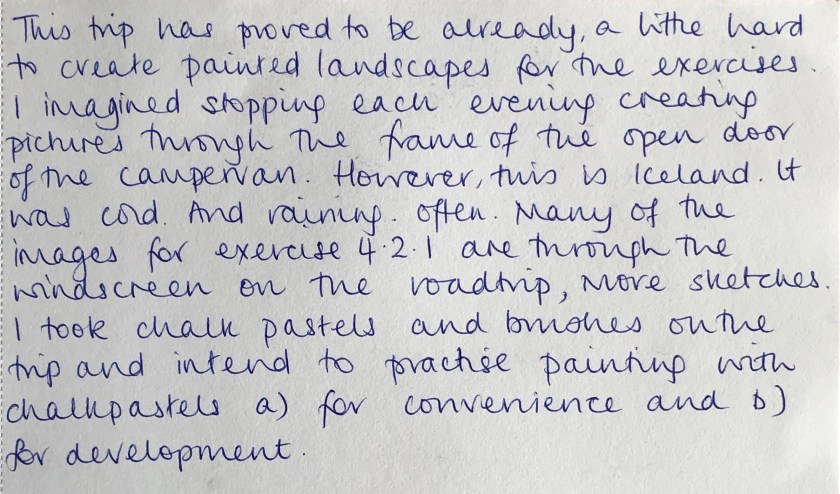 This trip has proved to be already, a little hard
to create painted landscapes for the exercises.
I imagined stopping each evening creating
pictures through the frame of the open door
of the campervan. However, this is Iceland. It
was cold. And raining. Often. Many of the
images for exercise 4.2.1 are through the
windscreen on the roadtrip, more sketches.
I took chalk pastels and brushes on the
trip and intend to practise painting with
chalkpastels a) for convenience and b)
for development.